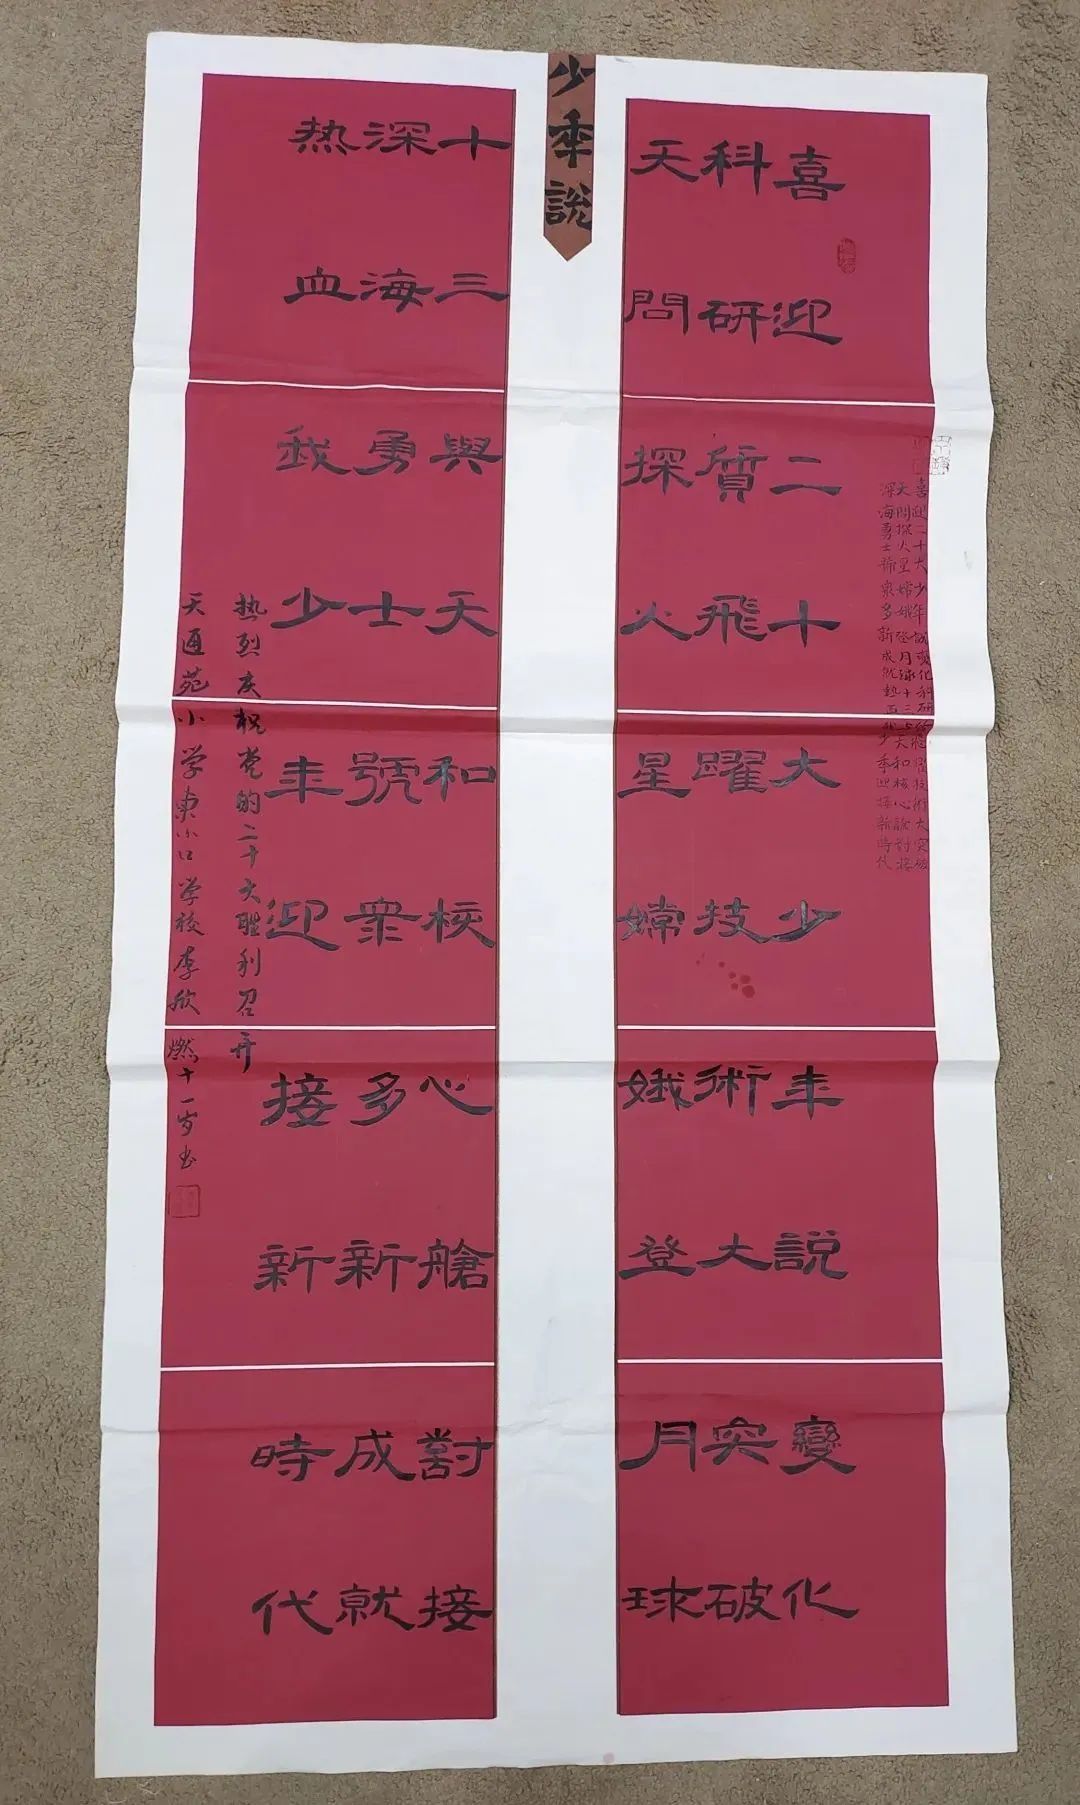 少年說
喜迎二十大少年說變化
科研質飛躍技術大突破
天問探火星嫦娥登月球
十三與天和核心艙對接
深海勇士號衆多新成就
热血我少年迎接新時代
喜迎二十大少年說變化科研质飛躍技術大突破
天問探火星嫦娥登月球十三与天和核心艙對接
深海勇士號衆多新成就熱血我少年迎接新時代
热烈庆祝党的二十大胜利召开
天通苑小学東小口学校李欣燃十一岁书